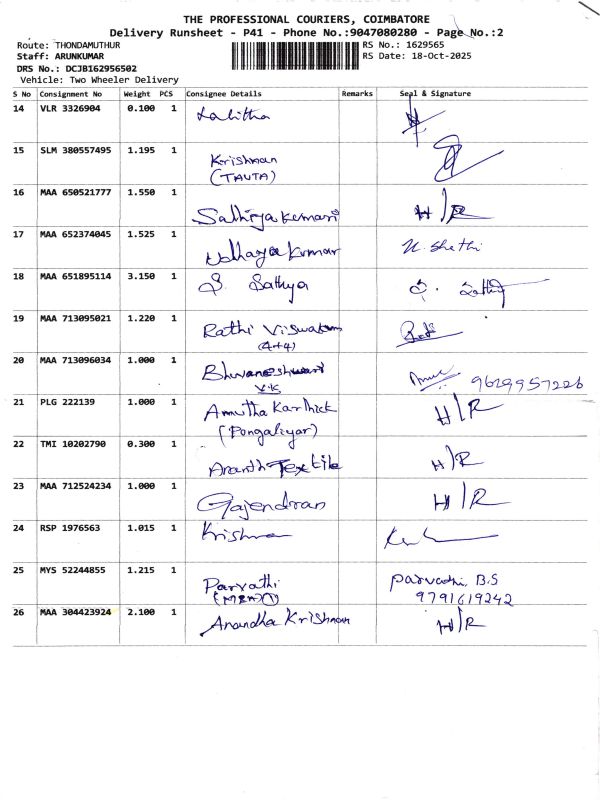 THE PROFESSIONAL COURIERS, COIMBATORE
Delivery Runsheet - P41 - Phone No.:9047080280 - Page No.:2
Route: THONDAMUTHUR RS No.: 1629565
Staff: ARUNKUMAR RS Date: 18-Oct-2025
DRS No.: DCJB162956502
Vehicle: Two Wheeler Delivery
S No Consignment No Weight PCS Consignee Details Remarks Seal & Signature
14 VLR 3326904 0.100 1 Lalitha
15 SLM 380557495 1.195 1 Krishnan
(TAUTA)
16 MAA 650521777 1.550 1 Sathiyakemari H/R
17 MAA 652374045 1.525 1 Udhaya Kumar U. Shethi
18 MAA 651895114 3.150 1 S. Sathya
19 MAA 713095021 1.220 1 Rathi Viswakom
(A+4)
20 MAA 713096034 1.000 1 Bhuvaneshwari 9629957226
V.K
21 PLG 222139 1.000 1 Amutha Karthick H/R
(Pongaliyar)
22 TMI 10202790 0.300 1 Ananth Textile H/R
23 MAA 712524234 1.000 1 Gajendran H/R
24 RSP 1976563 1.015 1 Krishna
25 MYS 52244855 1.215 1 Parvathi Parvathi, B.S
9791619242
26 MAA 304423924 2.100 1 Anandha Krishnan H/R